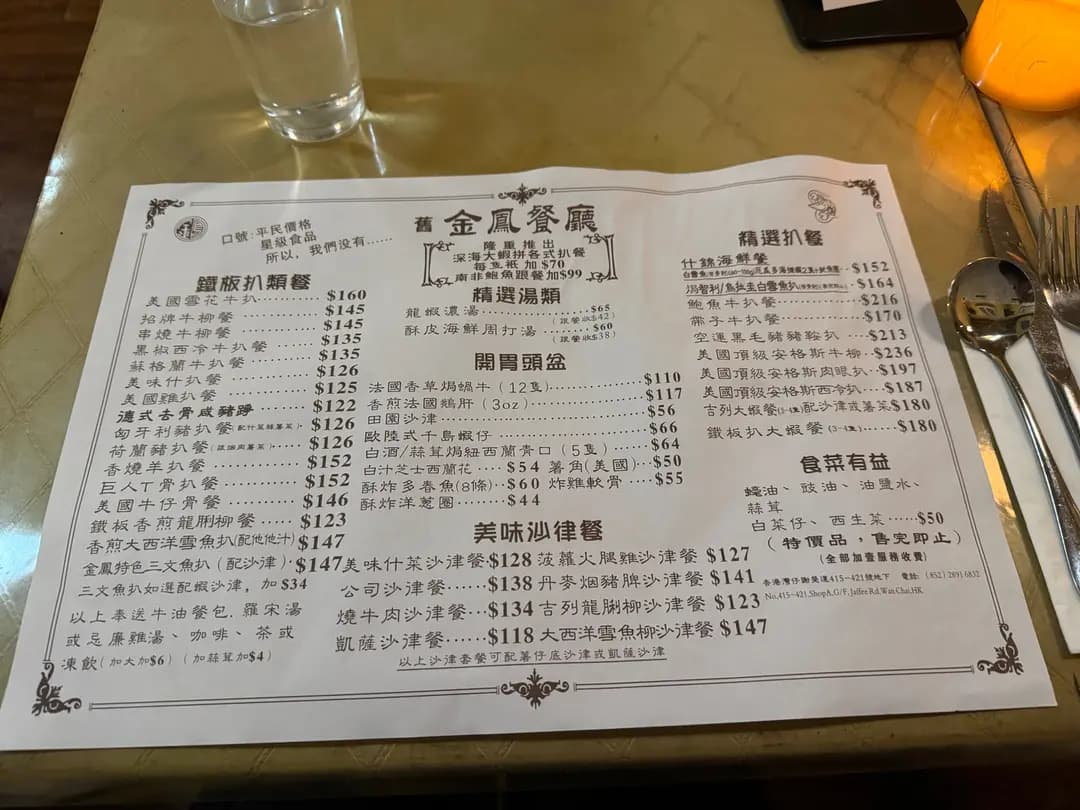 口號:平民價格
星級食品
所以，我們没有......
舊 金鳳餐廳
隆重推出
深海大蝦拼各式扒餐
每隻祇加 $70
南非鮑魚跟餐加$99
鐵板扒類餐
美國雪花牛扒 $160
招牌牛柳餐 $145
串燒牛柳餐 $145
黑椒西冷牛扒餐 $135
蘇格蘭牛扒餐 $135
美味什扒餐 $126
美國雞扒餐 $125
德式去骨咸豬踭 $122
匈牙利豬扒餐 $126
荷蘭豬扒餐 $126
香燒羊扒餐 $152
巨人T骨扒餐 $152
美國牛仔骨餐 $146
鐵板香煎龍脷柳餐 $123
香煎大西洋雪魚扒(配他他汁) $147
金鳳特色三文魚扒 (配沙律) $147
三文魚扒如選配蝦沙律，加 $34
以上奉送牛油餐包, 羅宋湯
或忌廉雞湯、咖啡、茶或
凍飲(加大加$6) (加蒜茸加$4)
精選湯類
龍蝦濃湯 $65
(跟餐收$42)
酥皮海鮮周打湯 $60
(跟餐收$38)
開胃頭盆
法國香草焗蝸牛 (12隻) $110
香煎法國鵝肝 (3oz) $117
田園沙律 $56
歐陸式千島蝦仔 $66
白酒/蒜茸焗紐西蘭青口 (5隻) $64
白汁芝士西蘭花 $54 薯角(美國) $50
酥炸多春魚(8條) $60 炸雞軟骨 $55
酥炸洋蔥圈 $44
美味沙律餐
美味什菜沙律餐 $128 菠蘿火腿雞沙律餐 $127
公司沙律餐 $138 丹麥烟豬脾沙律餐 $141
燒牛肉沙律餐 $134 吉列龍脷柳沙律餐 $123
凱薩沙律餐 $118 大西洋雪魚柳沙律餐 $147
以上沙律套餐可配薯仔底沙律或凱薩沙律
精選扒餐
什錦海鮮餐
$152
$164
鮑魚牛扒餐 $216
帶子牛扒餐 $170
空運黑毛豬豬鞍扒 $213
美國頂級安格斯牛柳 $236
美國頂級安格斯肉眼扒 $197
美國頂級安格斯西冷扒 $187
吉列大蝦餐(3-4隻)配沙律或薯菜 $180
鐵板扒大蝦餐(3-4隻) $180
食菜有益
蠔油、豉油、油鹽水、
蒜茸
白菜仔、西生菜 $50
(特價品，售完即止)
(全部加壹服務收費)
香港灣仔謝斐道415-421號地下 電話: (852) 2891 6832
No.415-421,ShopA,G/F,Jaffee Rd,Wan Chai,HK